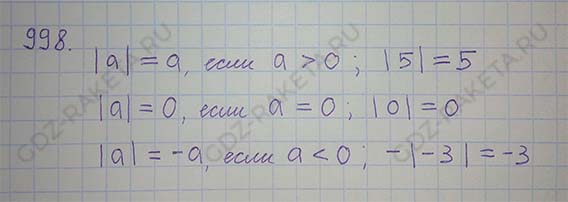 998.
|a| = a, если a > 0 ; |5| = 5
|a| = 0, если a = 0 ; |0| = 0
|a| = -a, если a < 0 ; -|-3| = -3
GDZ-RAKETA.RU
GDZ-RAKETA.RU
GDZ-RAKETA.RU